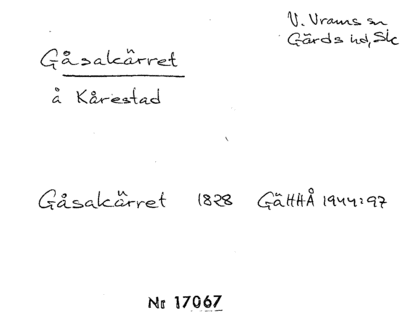 V. Vrams sn
Gärds hd, Sk
Gåsakärret
å Kårestad
Gåsakärret 1828 GäHHÅ 1944:97
Nr 17067